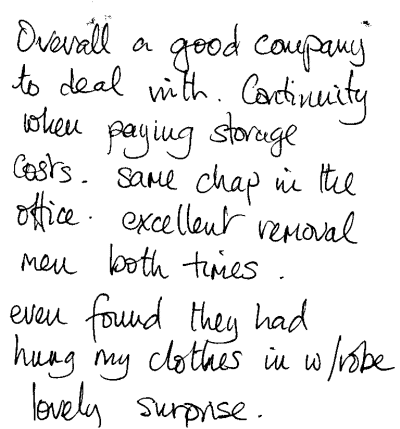 Overall a good company
to deal with. Continuity
when paying storage
costs. same chap in the
office. excellent removal
men both times.
even found they had
hung my clothes in w/robe
lovely surprise.